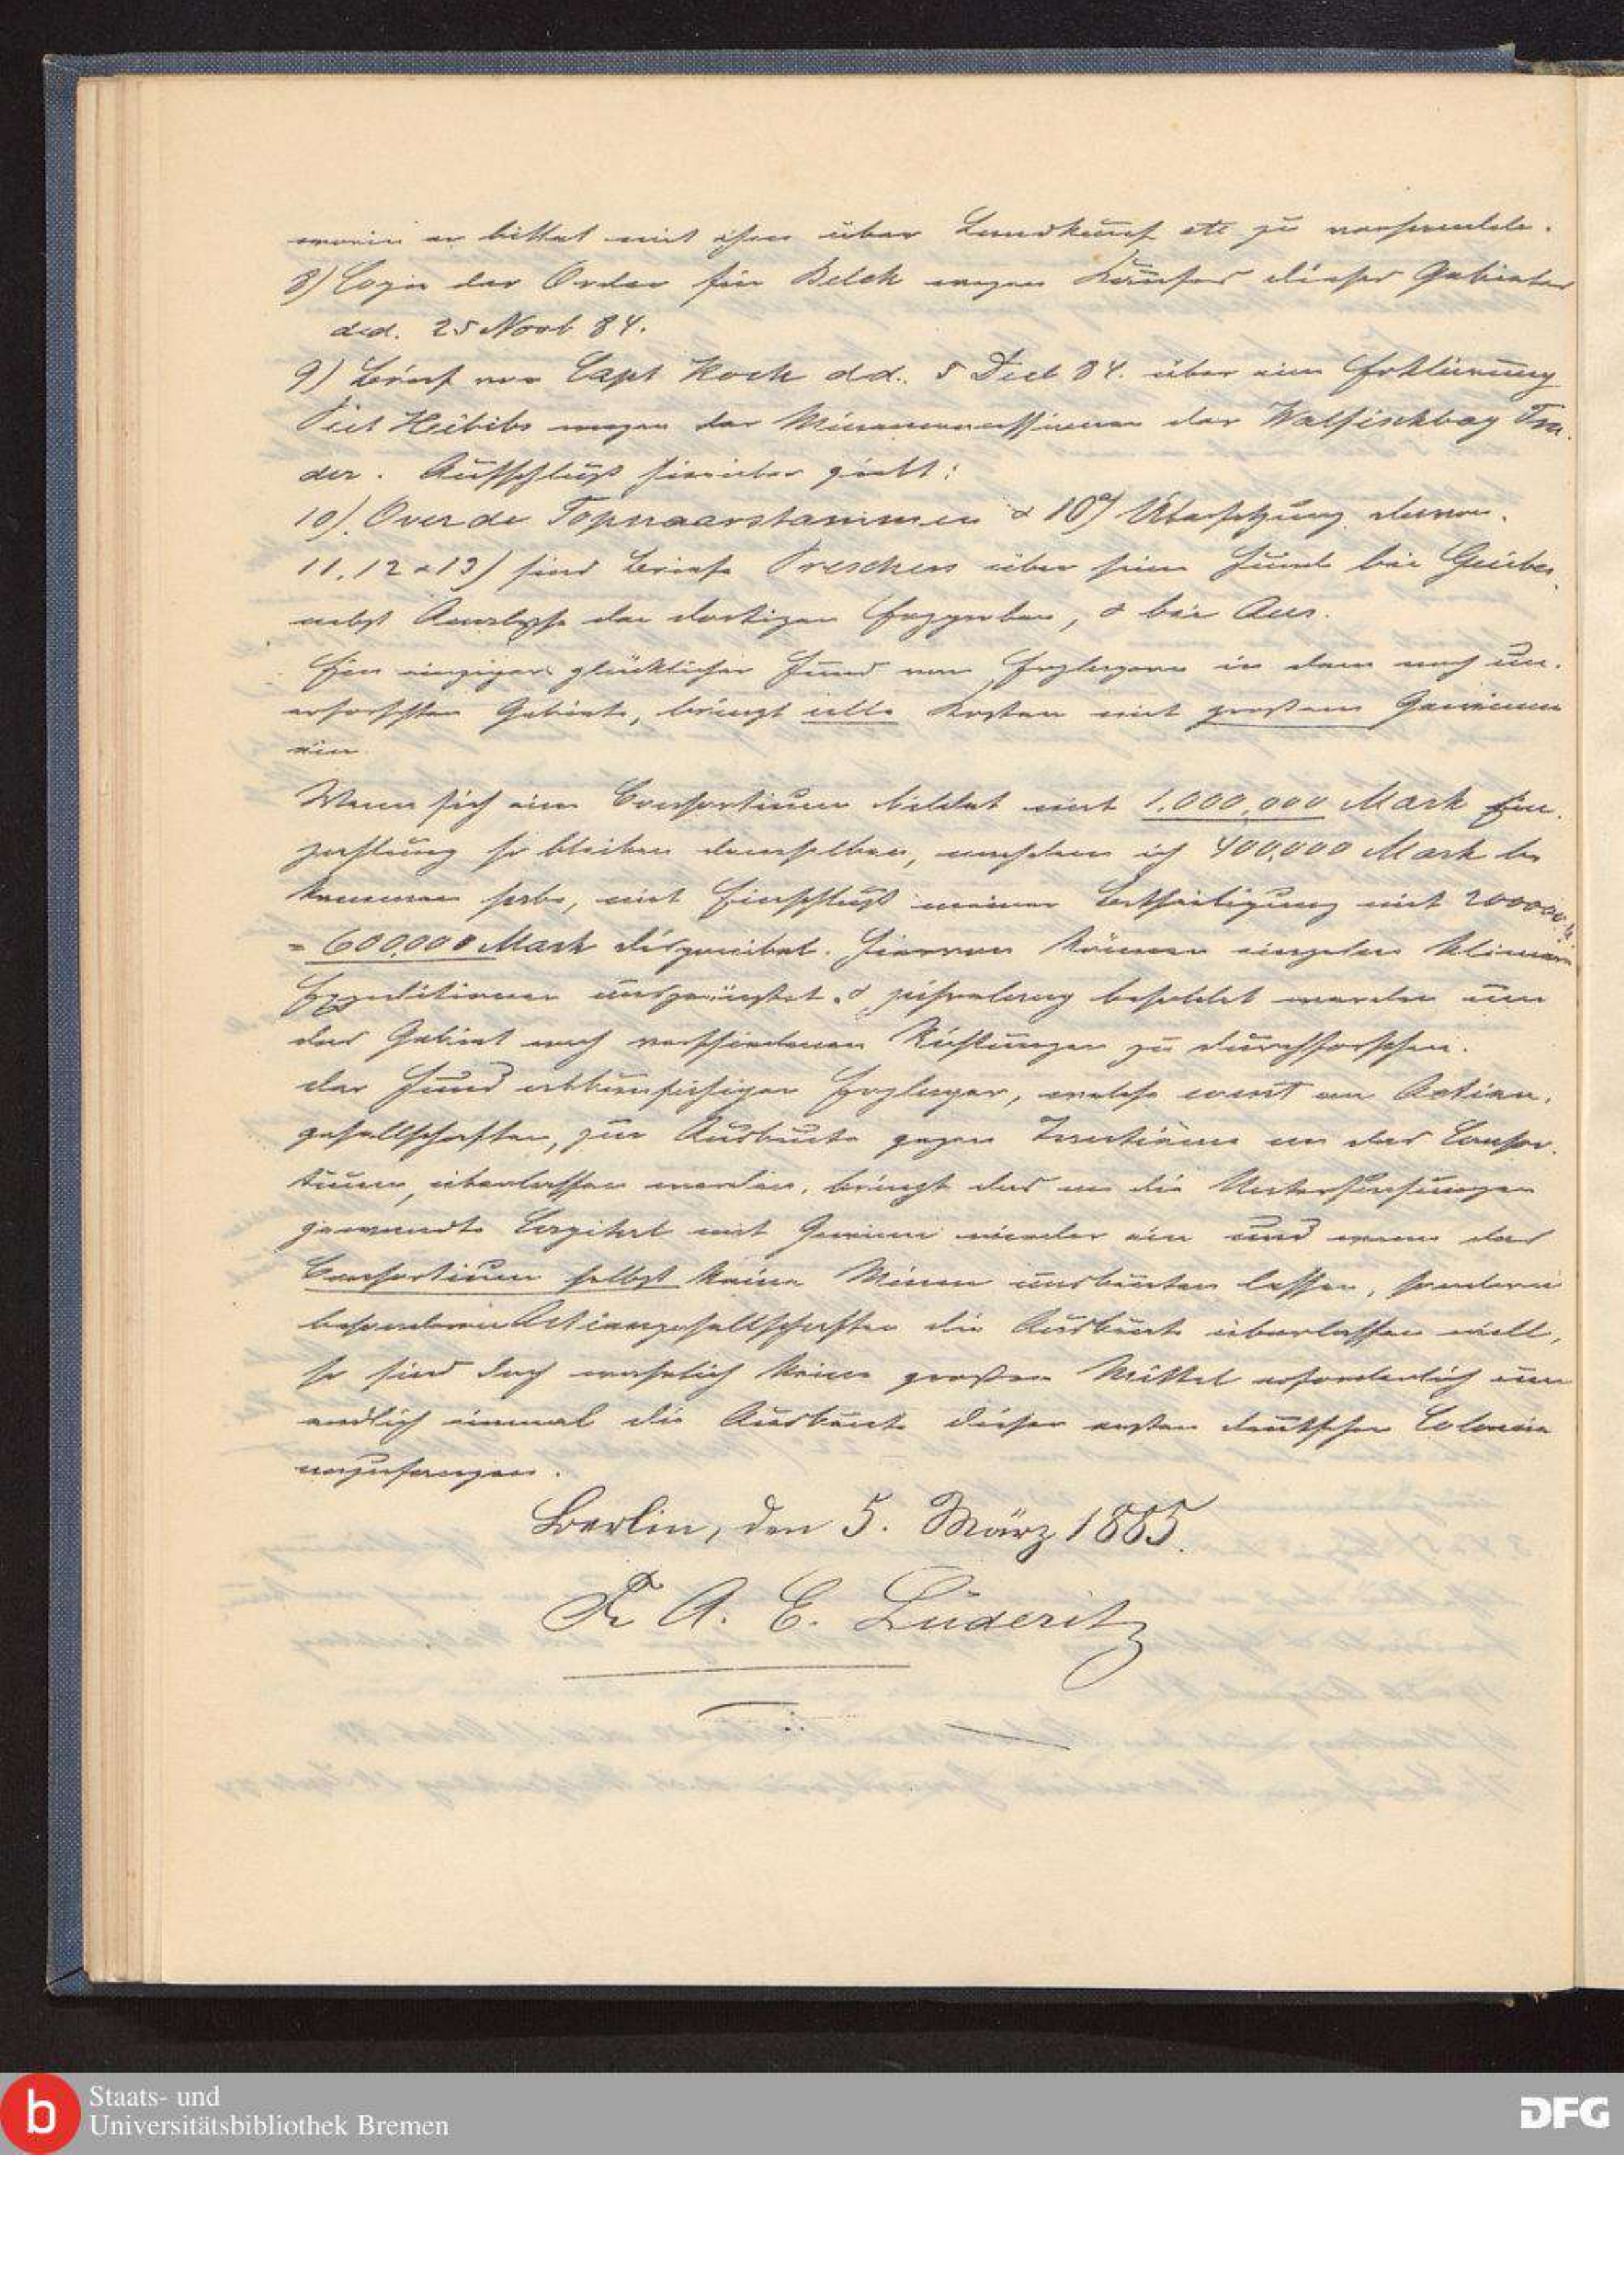 worin er bittet mit ihm über Landkauf etc zu verhandeln.
8) Copie der Order für Belck wegen Kaufes dieser Gebietes
dd. 25 Novb 84.
9) Brief von Capt Hoch dd. 5 Decb 84. über eine Erklärung
Piet Heibibs wegen der Minenconcessionen der Walfischbay Tra-
der. Aufschluß hierüber giebt:
10). Over de Topnaarstammen & 10a) Übersetzung davon.
11, 12 & 13) sind Briefe Preschers über seine Funde bei Guibes
nebst Analyse der dortigen Erzproben, & bei Aus.
Ein einziger glücklicher Fund von Erzlagern in dem noch un-
erforschten Gebiete, bringt alle Kosten mit großem Gewinne
ein
Wenn sich ein Consortium bildet mit 1.000,000 Mark Ein-
zahlung so bleiben demselben, nachdem ich 400,000 Mark be
kommen habe, mit Einschluß meiner Betheiligung mit 200000
= 600,000 Mark disponibel. Hiervon können einzelne kleinere
Expeditionen ausgerüstet & jahrelang besoldet werden um
das Gebiet nach verschiedenen Richtungen zu durchforschen.
der Fund abbaufähiger Erzlager, welche event an Actien-
gesellschaften, zur Ausbeute gegen Tantième an das Consor-
tium, überlassen werden, bringt das an die Untersuchungen
gewandte Capital mit Gewinn wieder ein und wenn das
Consortium selbst keine Minen ausbeuten lassen, sondern
besonderen Actiengesellschaften die Ausbeute überlassen will,
so sind doch wahrlich keine großen Mittel erforderlich um
endlich einmal die Ausbeute dieser ersten deutschen Colonie
anzufangen.
Berlin, den 5. März 1885.
F. A. E. Lüderitz
b Staats- und
Universitätsbibliothek Bremen
DFG